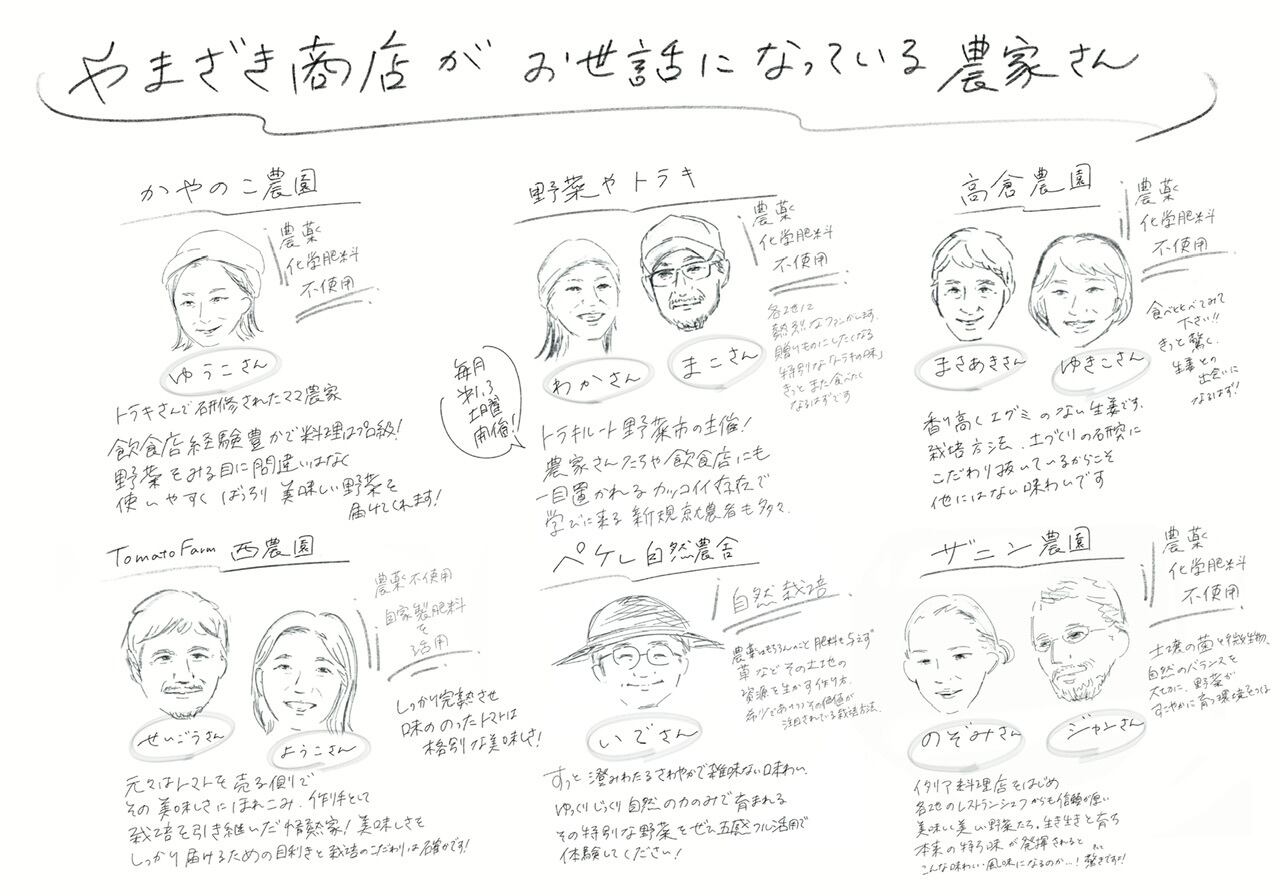 やまざき商店がお世話になっている農家さん
かやのこ農園
農薬
化学肥料
不使用
ゆうこさん
トラキさんで研修されたママ農家
飲食店経験豊かで料理はプロ級!
野菜をみる目に間違いはなく
使いやすくばっちり美味しい野菜を
届けてくれます!
野菜やトラキ
農薬
化学肥料
不使用
各地に
熱烈なファンがいます。
贈りものにしたくなる
特別な「トラキの味」
きっとまた食べたく
なるはずです
わかさん
まこさん
毎月
第1,3
土曜
開催!
トラキルート野菜市の主催!
農家さんたちや飲食店にも
一目置かれるカッコイイ存在で
学びに来る新規就農者も多々。
高倉農園
農薬
化学肥料
不使用
食べくらべてみて
下さい!!
きっと驚く、
生姜との
出会いに
なるはず!
まさあきさん
ゆきこさん
香り高くエグミのない生姜です。
栽培方法、土づくりの研究に
こだわり抜いているからこそ
他にはない味わいです
Tomato Farm 西農園
農薬不使用
自家製肥料
を
活用
しっかり完熟させ
味ののったトマトは
格別な美味しさ!
せいごうさん
ようこさん
元々はトマトを売る側で
その美味しさにほれこみ、作り手として
栽培を引き継いだ情熱家!美味しさを
しっかり届けるための目利きと栽培のこだわりは確かです!
ペケレ自然農舎
自然栽培
農薬はもちろんのこと肥料も与えず
草などその土地の
資源を生かす作り方。
希少でありつつその価値が
注目されている栽培方法。
いでさん
すっと澄みわたるさわやかで雑味ない味わい。
ゆっくりじっくり自然の力のみで育まれる
その特別な野菜をぜひ五感フル活用で
体験してください!
ザニン農園
農薬
化学肥料
不使用
土壌の菌や微生物、
自然のバランスを
大切に、野菜が
すこやかに育つ環境をつくる
のぞみさん
ジャンさん
イタリア料理店をはじめ
各地のレストランシェフからも信頼が厚い
美味しく美しい野菜たち。生き生きと育ち
本来の持ち味が発揮されると
こんな味わい・風味になるのか…!驚きです!